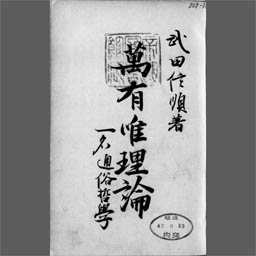 武田信順著
萬有唯理論
一名通俗哲學